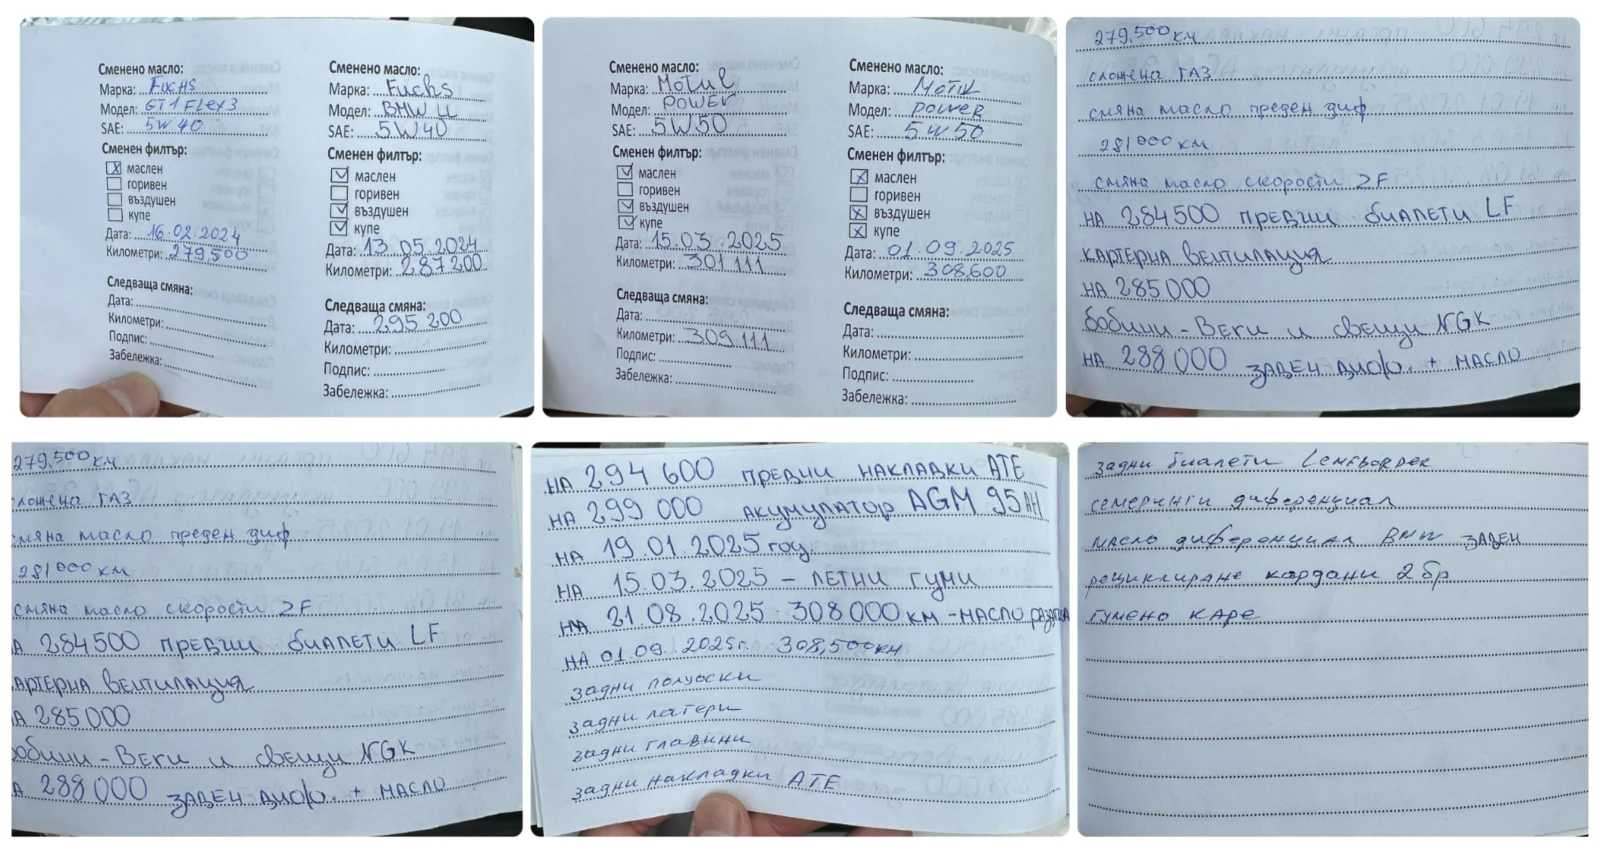 Сменено масло:
Марка: Fuchs
Модел: GT1 Flex3
SAE: 5W40
Сменен филтър:
маслен
горивен
въздушен
купе
Дата: 16.02.2024
Километри: 279,500
Следваща смяна:
Дата:
Километри:
Подпис:
Забележка:
Сменено масло:
Марка: Fuchs
Модел: BMW LL
SAE: 5W40
Сменен филтър:
маслен
горивен
въздушен
купе
Дата: 13.05.2024
Километри: 287200
Следваща смяна:
Дата: 295 200
Километри:
Подпис:
Забележка:
Сменено масло:
Марка: Motul
Модел: POWER
SAE: 5W50
Сменен филтър:
маслен
горивен
въздушен
купе
Дата: 15.03.2025
Километри: 301 111
Следваща смяна:
Дата:
Километри: 309 111
Подпис:
Забележка:
Сменено масло:
Марка:
Модел: power
SAE: 5W50
Сменен филтър:
маслен
горивен
въздушен
купе
Дата: 01.09.2025
Километри: 308,600
Следваща смяна:
Дата:
Километри:
Подпис:
Забележка:
279,500 км
сложена ГАЗ
смяна масло преден диф
281000 км
смяна масло скорости ZF
НА 284500 ПРЕДНИ БИАЛЕТИ LF
КАРТЕРНА ВЕНТИЛАЦИЯ
НА 285000
бобини - Веги и свещи NGK
НА 288000 ЗАДЕН ДИФ. + МАСЛО
279,500 км
сложена ГАЗ
смяна масло преден диф
281000 км
смяна масло скорости ZF
А 284500 ПРЕДНИ БИАЛЕТИ LF
АРТЕРНА ВЕНТИЛАЦИЯ
А 285000
обини - Веги и свещи NGK
А 288000 ЗАДЕН ДИФ. + МАСЛО
НА 294 600 ПРЕДНИ НАКЛАДКИ ATE
НА 299 000 АКУМУЛАТОР AGM 95AH
НА 19.01.2025 год.
НА 15.03.2025 - ЛЕТНИ ГУМИ
НА 21.08.2025 308000 КМ - МАСЛО
НА 01.09.2025г. 308,500км
задни полуоски
задни лагери
задни главини
задни накладки ATE
задни биалети Lemforder
семеринги диференциал
масло диференциал BMW ЗАДЕН
рециклиране кардани 2бр
гумено каре